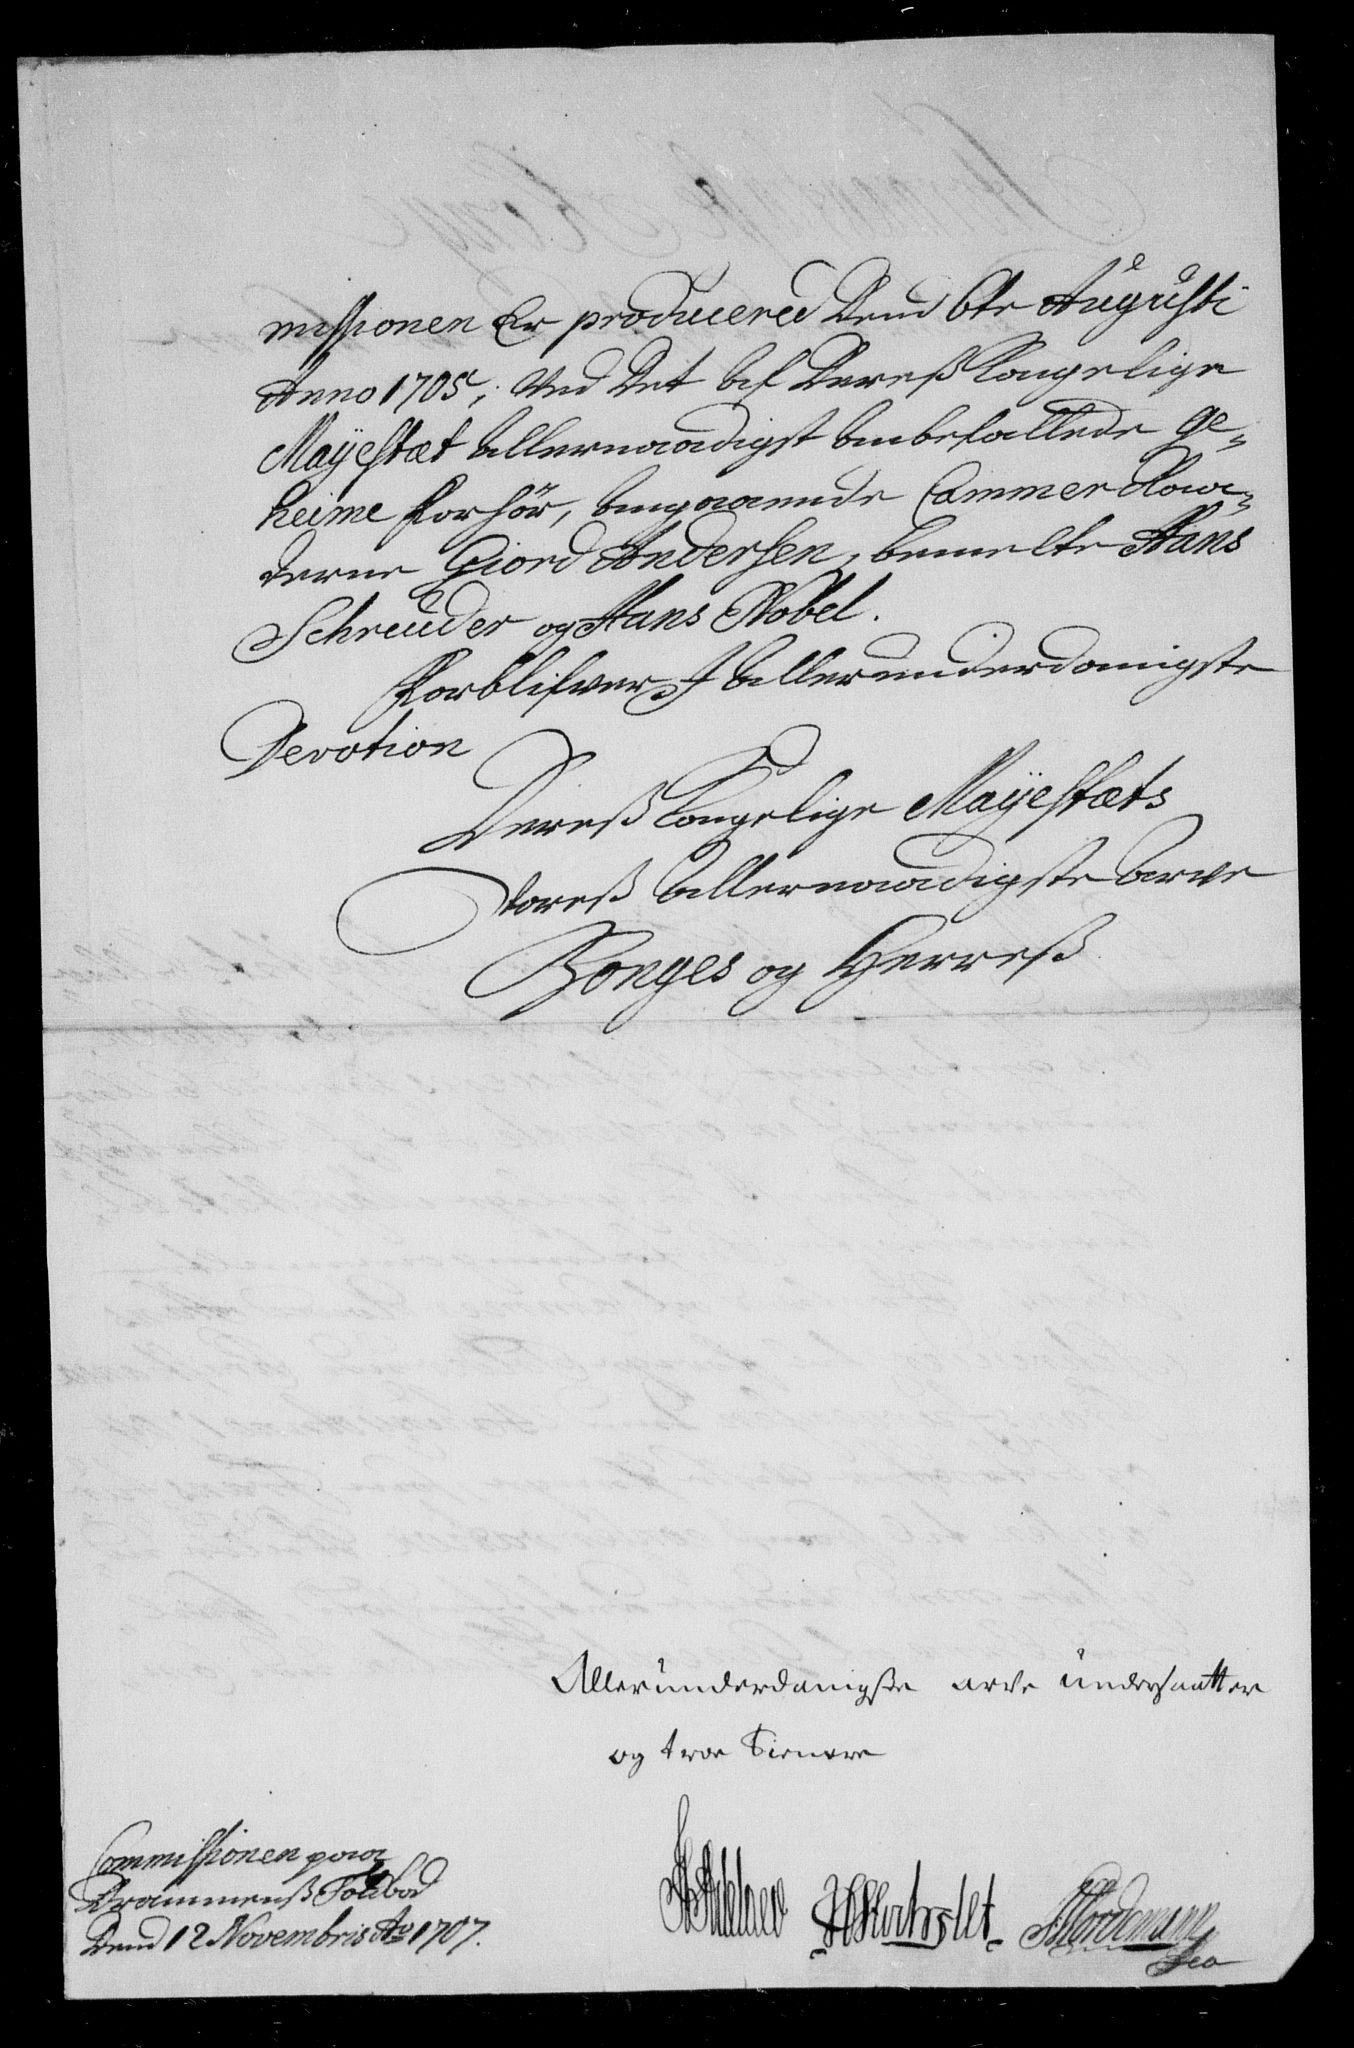 missionen Er producered Dend 6te Augusti
Anno 1705, Ved Det Af Dereß Kongelige
Mayestæt Allernaadigst Anbefallede Ge-
heime Forhör, Angaaende Cammer Raa-
derne Giord Andersen, bemelte Hans
Schreuder og Hans Nobel.
Forblifver I Allerunderdanigste
Devotion
Dereß Kongelige Mayestæts
Voreß Allernaadigste Arve
Konges og Herreß
Allerunderdanigste arve undersaatter
og troe Tienere
Commissionen paa
Drammenß Toldbod
Dend 12 Novembris Ao 1707.